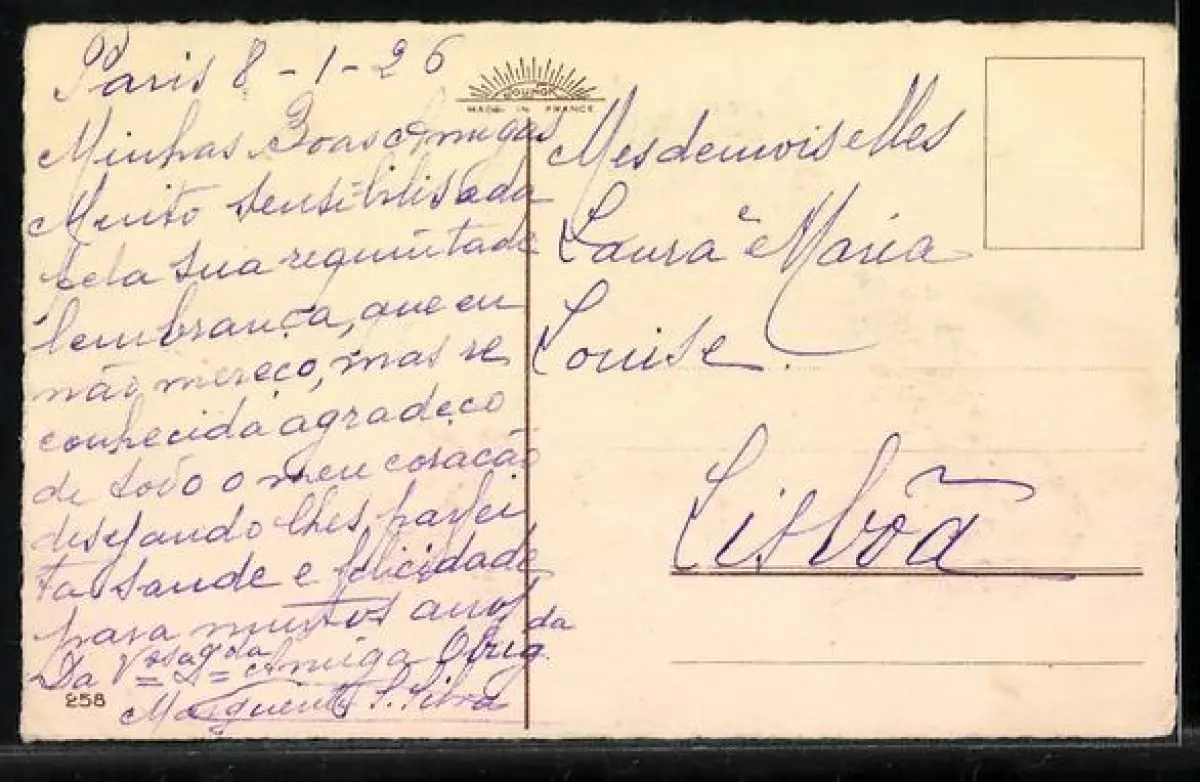 Paris 8-1-26
Minhas Boas Amigas
Muito sensibilisada
pela sua requintade
lembrança, que eu
não mereço, mas re
conhecida agradeço
de todo o meu coração
desejando lhes, parfei
ta saude e felicidade
para muitos anos
Da Amiga Obrig.da
S. Silva
258
MADE IN FRANCE
Mesdemoiselles
Laura e Maria
Louise.
Lisbõa